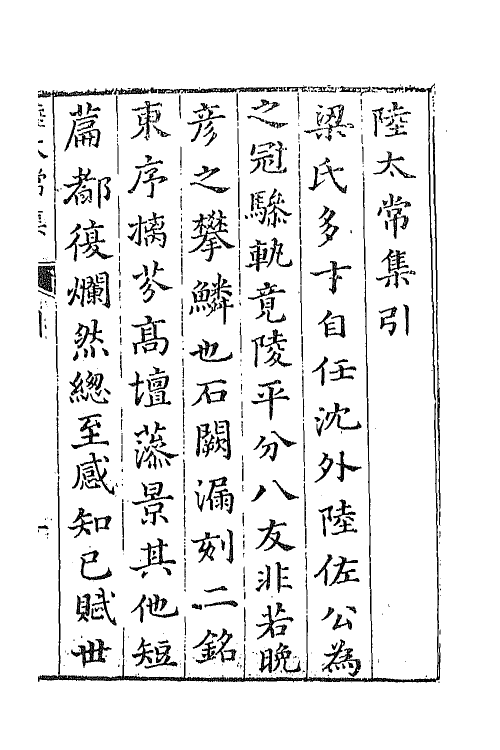 陸太常集引
梁氏多才自任沈外陸佐公為
之冠驂軌竟陵平分八友非若晚
彦之攀鱗也石闕漏刻二銘
東序摛芬髙壇藻景其他短
篇都復爛然總至感知己賦世